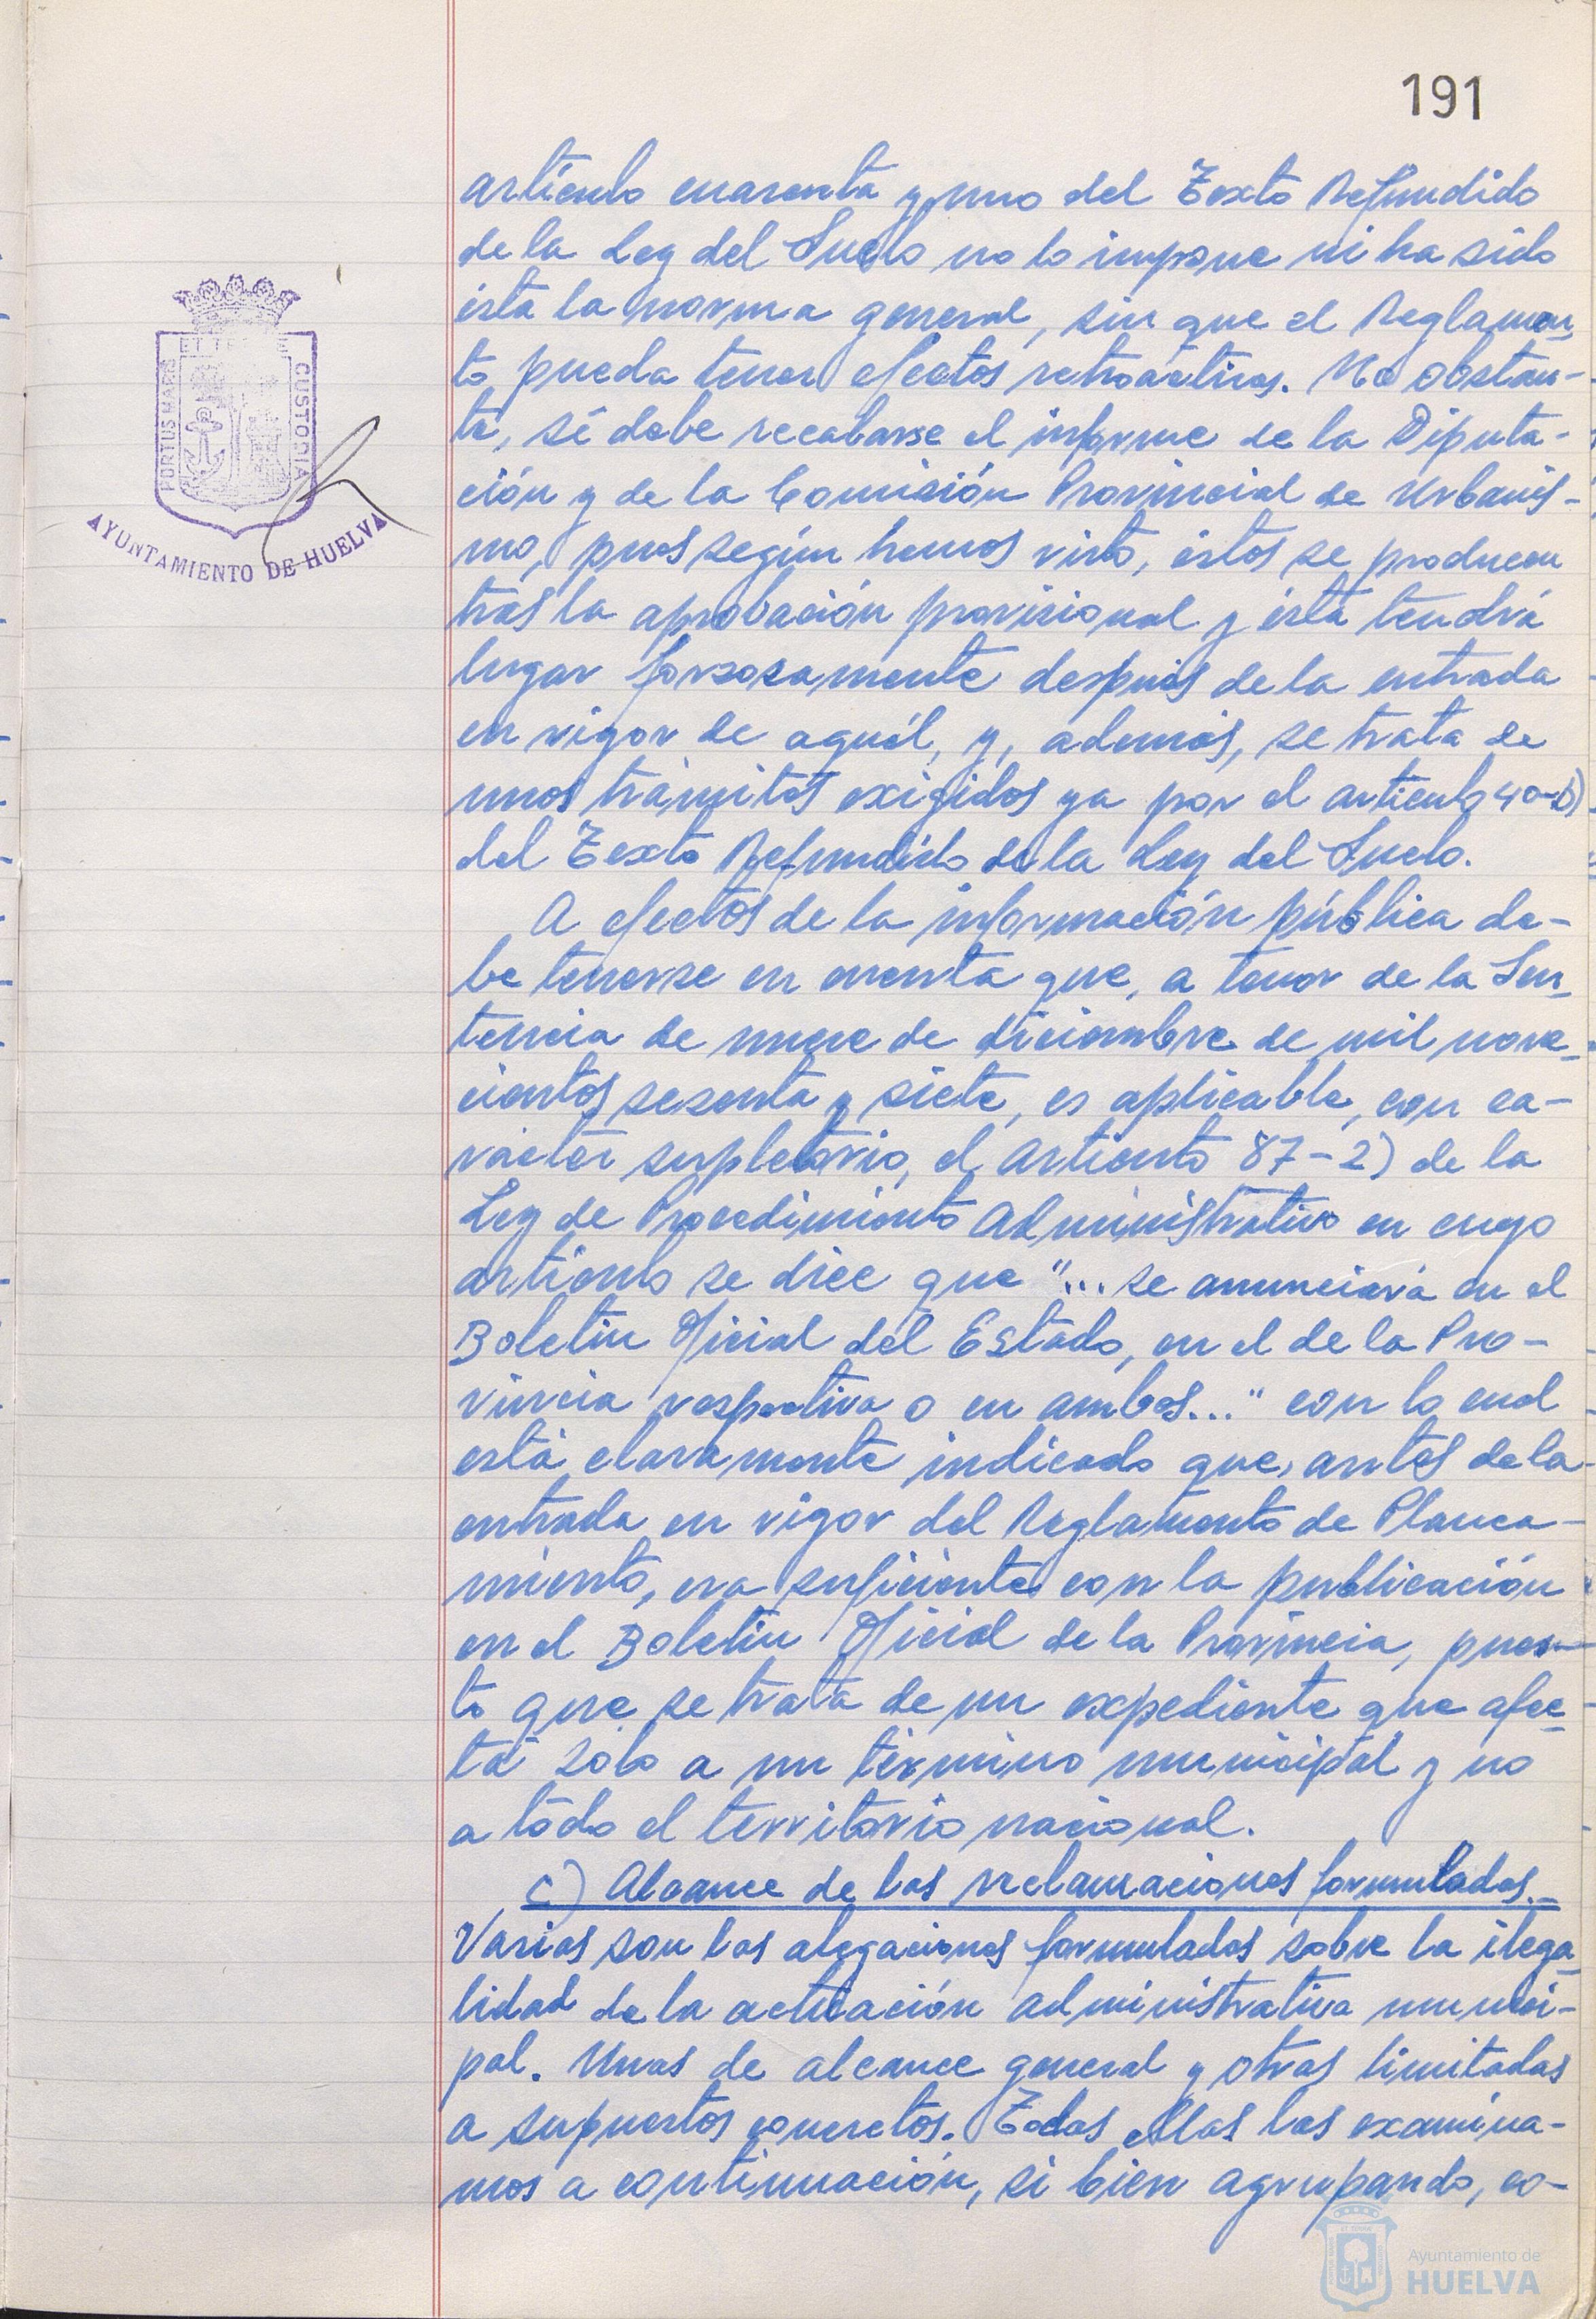 191
artículo cuarenta y uno del Texto Refundido
de la Ley del Suelo no lo impone ni ha sido
ésta la norma general, sin que el Reglamen-
to pueda tener efectos retroactivos. No obstan-
te, sí debe recabarse el informe de la Diputa-
ción y de la Comisión Provincial de Urbanis-
mo, pues según hemos visto, éstos se producen
tras la aprobación provisional y ésta tendrá
lugar forzosamente después de la entrada
en vigor de aquél, y, además, se trata de
unos trámites exigidos ya por el artículo 40-b)
del Texto Refundido de la Ley del Suelo.
A efectos de la información pública de-
be tenerse en cuenta que, a tenor de la Sen-
tencia de nueve de diciembre de mil nove-
cientos sesenta y siete, es aplicable, con ca-
rácter supletorio, el artículo 87-2) de la
Ley de Procedimiento Administrativo en cuyo
artículo se dice que "... se anunciará en el
Boletín Oficial del Estado, en el de la Pro-
vincia respectiva o en ambos..." con lo cual
está claramente indicado que, antes de la
entrada en vigor del Reglamento de Planea-
miento, era suficiente con la publicación
en el Boletín Oficial de la Provincia, pues-
to que se trata de un expediente que afec-
ta solo a un término municipal y no
a todo el territorio nacional.
c) Alcance de las reclamaciones formuladas.-
Varias son las alegaciones formuladas sobre la ilega-
lidad de la actuación administrativa munici-
pal. Unas de alcance general y otras limitadas
a supuestos concretos. Todas ellas las examina-
mos a continuación, si bien agrupando, co-
PORTUS MARIS
CUSTODIA
AYUNTAMIENTO DE HUELVA
Ayuntamiento de
HUELVA